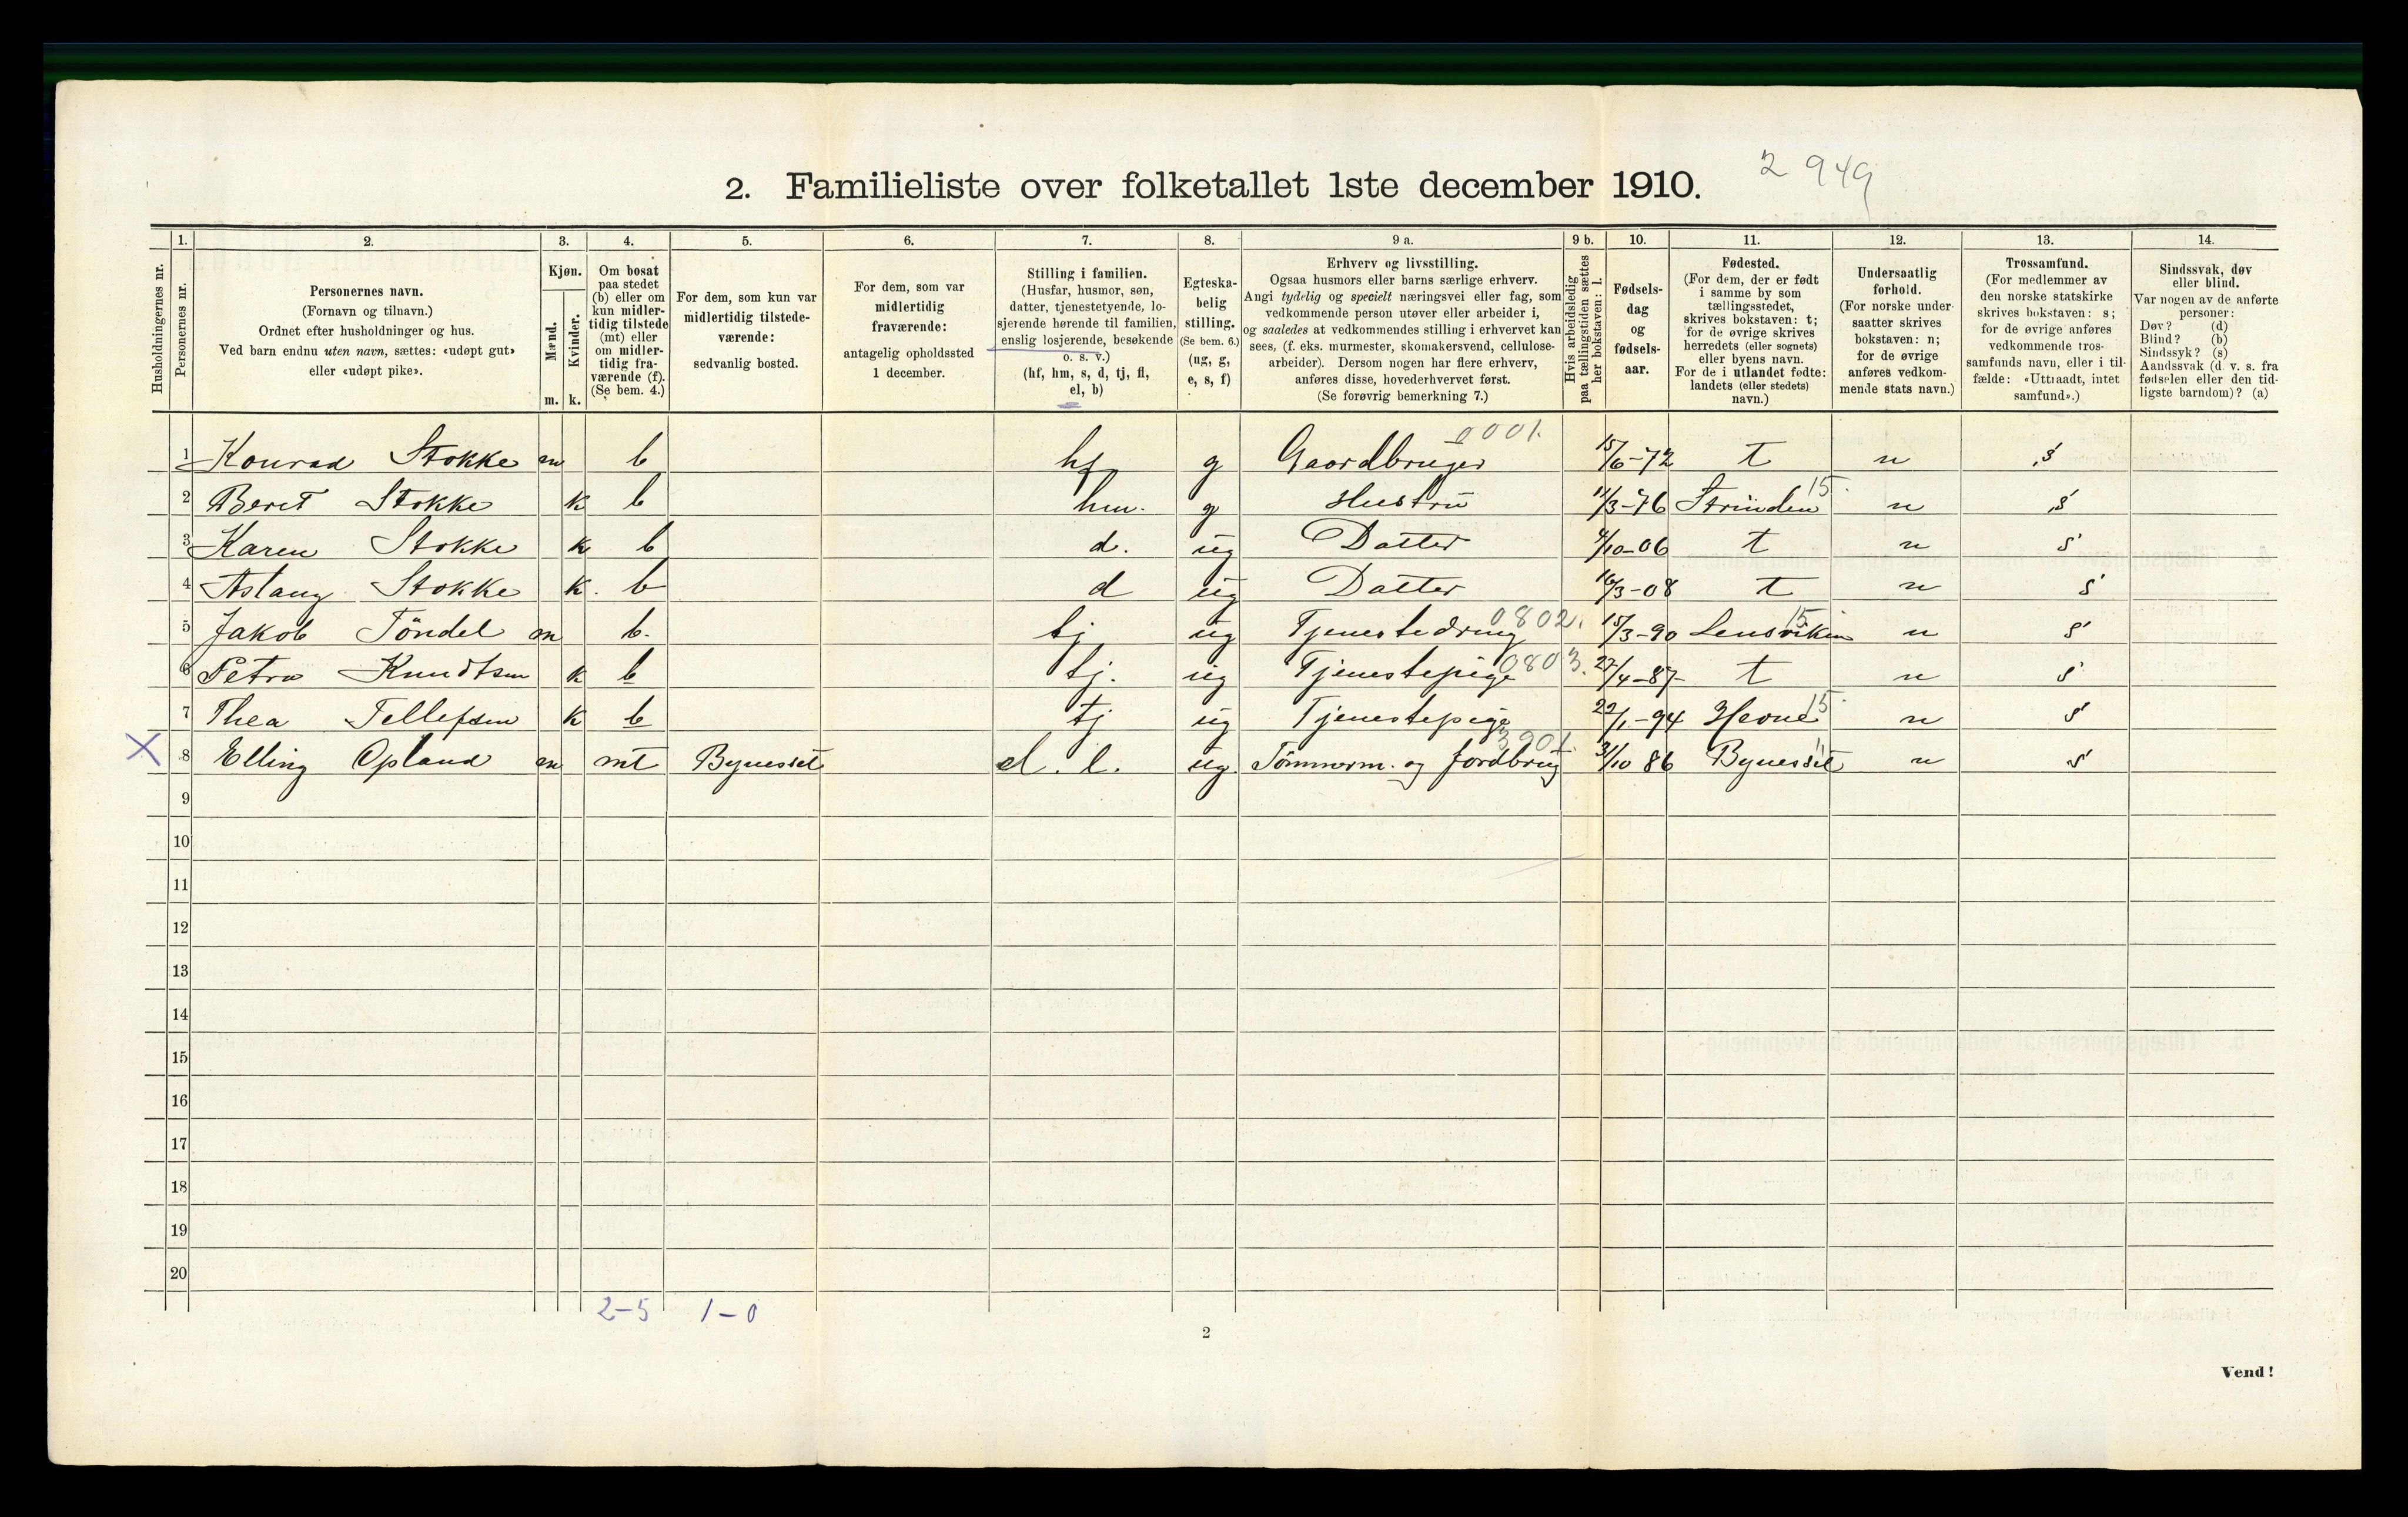 2. Familieliste over folketallet 1ste december 1910.
2 949
1. 2. 3. 4. 5. 6. 7. 8. 9 a. 9 b. 10. 11. 12. 13. 14.
Husholdningernes nr.
Personernes nr.
Personernes navn.
(Fornavn og tilnavn.)
Ordnet efter husholdninger og hus.
Ved barn endnu uten navn, sættes: «udøpt gut»
eller «udøpt pike».
Kjøn.
Mænd.
Kvinder.
m. k.
Om bosat
paa stedet
(b) eller om
kun midler-
tidig tilstede
(mt) eller
om midler-
tidig fra-
værende (f).
(Se bem. 4.)
For dem, som kun var
midlertidig tilstede-
værende:
sedvanlig bosted.
For dem, som var
midlertidig
fraværende:
antagelig opholdssted
1 december.
Stilling i familien.
(Husfar, husmor, søn,
datter, tjenestetyende, lo-
sjerende hørende til familien,
enslig losjerende, besøkende
o. s. v.)
(hf, hm, s, d, tj, fl,
el, b)
Egteska-
belig
stilling.
(Se bem. 6.)
(ug, g,
e, s, f)
Erhverv og livsstilling.
Ogsaa husmors eller barns særlige erhverv.
Angi tydelig og specielt næringsvei eller fag, som
vedkommende person utøver eller arbeider i,
og saaledes at vedkommendes stilling i erhvervet kan
sees, (f. eks. murmester, skomakersvend, cellulose-
arbeider). Dersom nogen har flere erhverv,
anføres disse, hovederhvervet først.
(Se forøvrig bemerkning 7.)
Hvis arbeidsledig
paa tællingstiden sættes
her bokstaven: l.
Fødsels-
dag
og
fødsels-
aar.
Fødested.
(For dem, der er født
i samme by som
tællingsstedet,
skrives bokstaven: t;
for de øvrige skrives
herredets (eller sognets)
eller byens navn.
For de i utlandet fødte:
landets (eller stedets)
navn.)
Undersaatlig
forhold.
(For norske under-
saatter skrives
bokstaven: n;
for de øvrige
anføres vedkom-
mende stats navn.)
Trossamfund.
(For medlemmer av
den norske statskirke
skrives bokstaven: s;
for de øvrige anføres
vedkommende tros-
samfunds navn, eller i til-
fælde: «Uttraadt, intet
samfund».)
Sindssvak, døv
eller blind.
Var nogen av de anførte
personer:
Døv? (d)
Blind? (b)
Sindssyk? (s)
Aandssvak (d. v. s. fra
fødselen eller den tid-
ligste barndom)? (a)
1 Konrad Stokke m b hf g Gaardbruger 0001. 15/6-72 t n s
2 Beret Stokke k b hm. g Hustru 11/3-76 Strinden 15. n s
3 Karen Stokke k b d. ug Datter 4/10-06 t n s
4 Aslaug Stokke k. b d ug Datter 16/3-08 t n s
5 Jakob Töndel m b. tj ug Tjenestedreng 0802. 15/3-90 Lensviken 15 n s
6 Petra Knudtsen k b tj. ug Tjenestepige 0803. 27/4-87 t n s
7 Thea Tellefsen k b tj ug Tjenestepige 22/1-94 Hevne 15. n s
X 8 Elling Opland m mt Bynesset el. l. ug. Tömmerm. og Jordbrug 3901. 31/10 86 Bynesset n s
9
10
11
12
13
14
15
16
17
18
19
20
2-5 1-0
2
Vend!